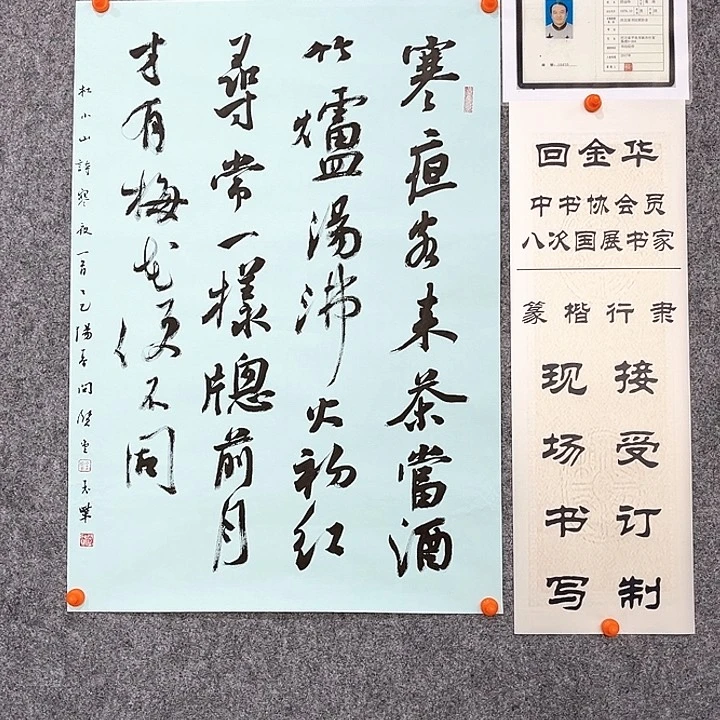 寒亱客来茶當酒
竹爐湯沸火初紅
尋常一樣牕前月
才有梅花便不同
杜小山詩寒夜一首乙巳陽春
回金华
中书协会员
八次国展书家
篆楷行隶
现场书写
接受订制